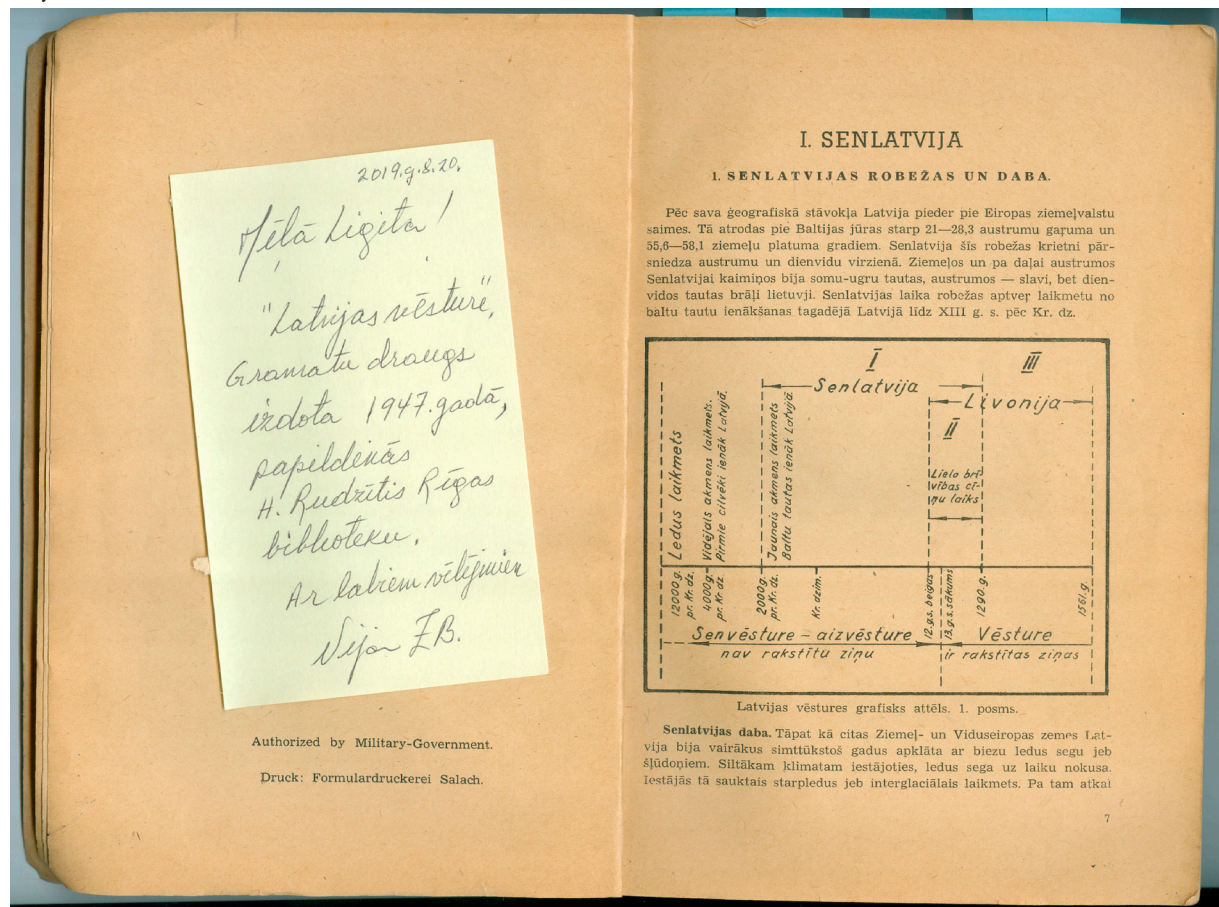 2019.g.8.20.
Mēlā Ligita!
"Latvijas vēsture",
Gramatu draugs
izdota 1947.gadā,
papildinās
H. Rudzītis Rīgas
biblioteku.
Ar labiem vēlējumiem
Vija ZB.
Authorized by Military-Government.
Druck: Formulardruckerei Salach.
I. SENLATVIJA
1. SENLATVIJAS ROBEŽAS UN DABA.
Pēc sava ģeografiskā stāvokļa Latvija pieder pie Eiropas ziemeļvalstu
saimes. Tā atrodas pie Baltijas jūras starp 21—28,3 austrumu gaŗuma un
55,6—58,1 ziemeļu platuma gradiem. Senlatvija šīs robežas krietni pār-
sniedza austrumu un dienvidu virzienā. Ziemeļos un pa daļai austrumos
Senlatvijai kaimiņos bija somu-ugru tautas, austrumos — slavi, bet dien-
vidos tautas brāļi lietuvji. Senlatvijas laika robežas aptveŗ laikmetu no
baltu tautu ienākšanas tagadējā Latvijā līdz XIII g. s. pēc Kr. dz.
I
III
Senlatvija
Livonija
II
Lielo brī-
vības cī-
ņu laiks
Ledus laikmets
Vidējais akmens laikmets.
Pirmie cilvēki ienāk Latvijā.
Jaunais akmens laikmets
Baltu tautas ienāk Latvijā.
12000g.
pr. Kr. dz.
4000g.
pr. Kr. dz
2000g.
pr. Kr. dz.
Kr. dzim.
12.g.s. beigas
13.g.s. sākums
1290.g.
1561.g.
Senvēsture – aizvēsture
Vēsture
nav rakstītu ziņu
ir rakstītas ziņas
Latvijas vēstures grafisks attēls. 1. posms.
Senlatvijas daba. Tāpat kā citas Ziemeļ- un Viduseiropas zemes Lat-
vija bija vairākus simttūkstoš gadus apklāta ar biezu ledus segu jeb
šļūdoņiem. Siltākam klimatam iestājoties, ledus sega uz laiku nokusa.
Iestājās tā sauktais starpledus jeb interglaciālais laikmets. Pa tam atkal
7